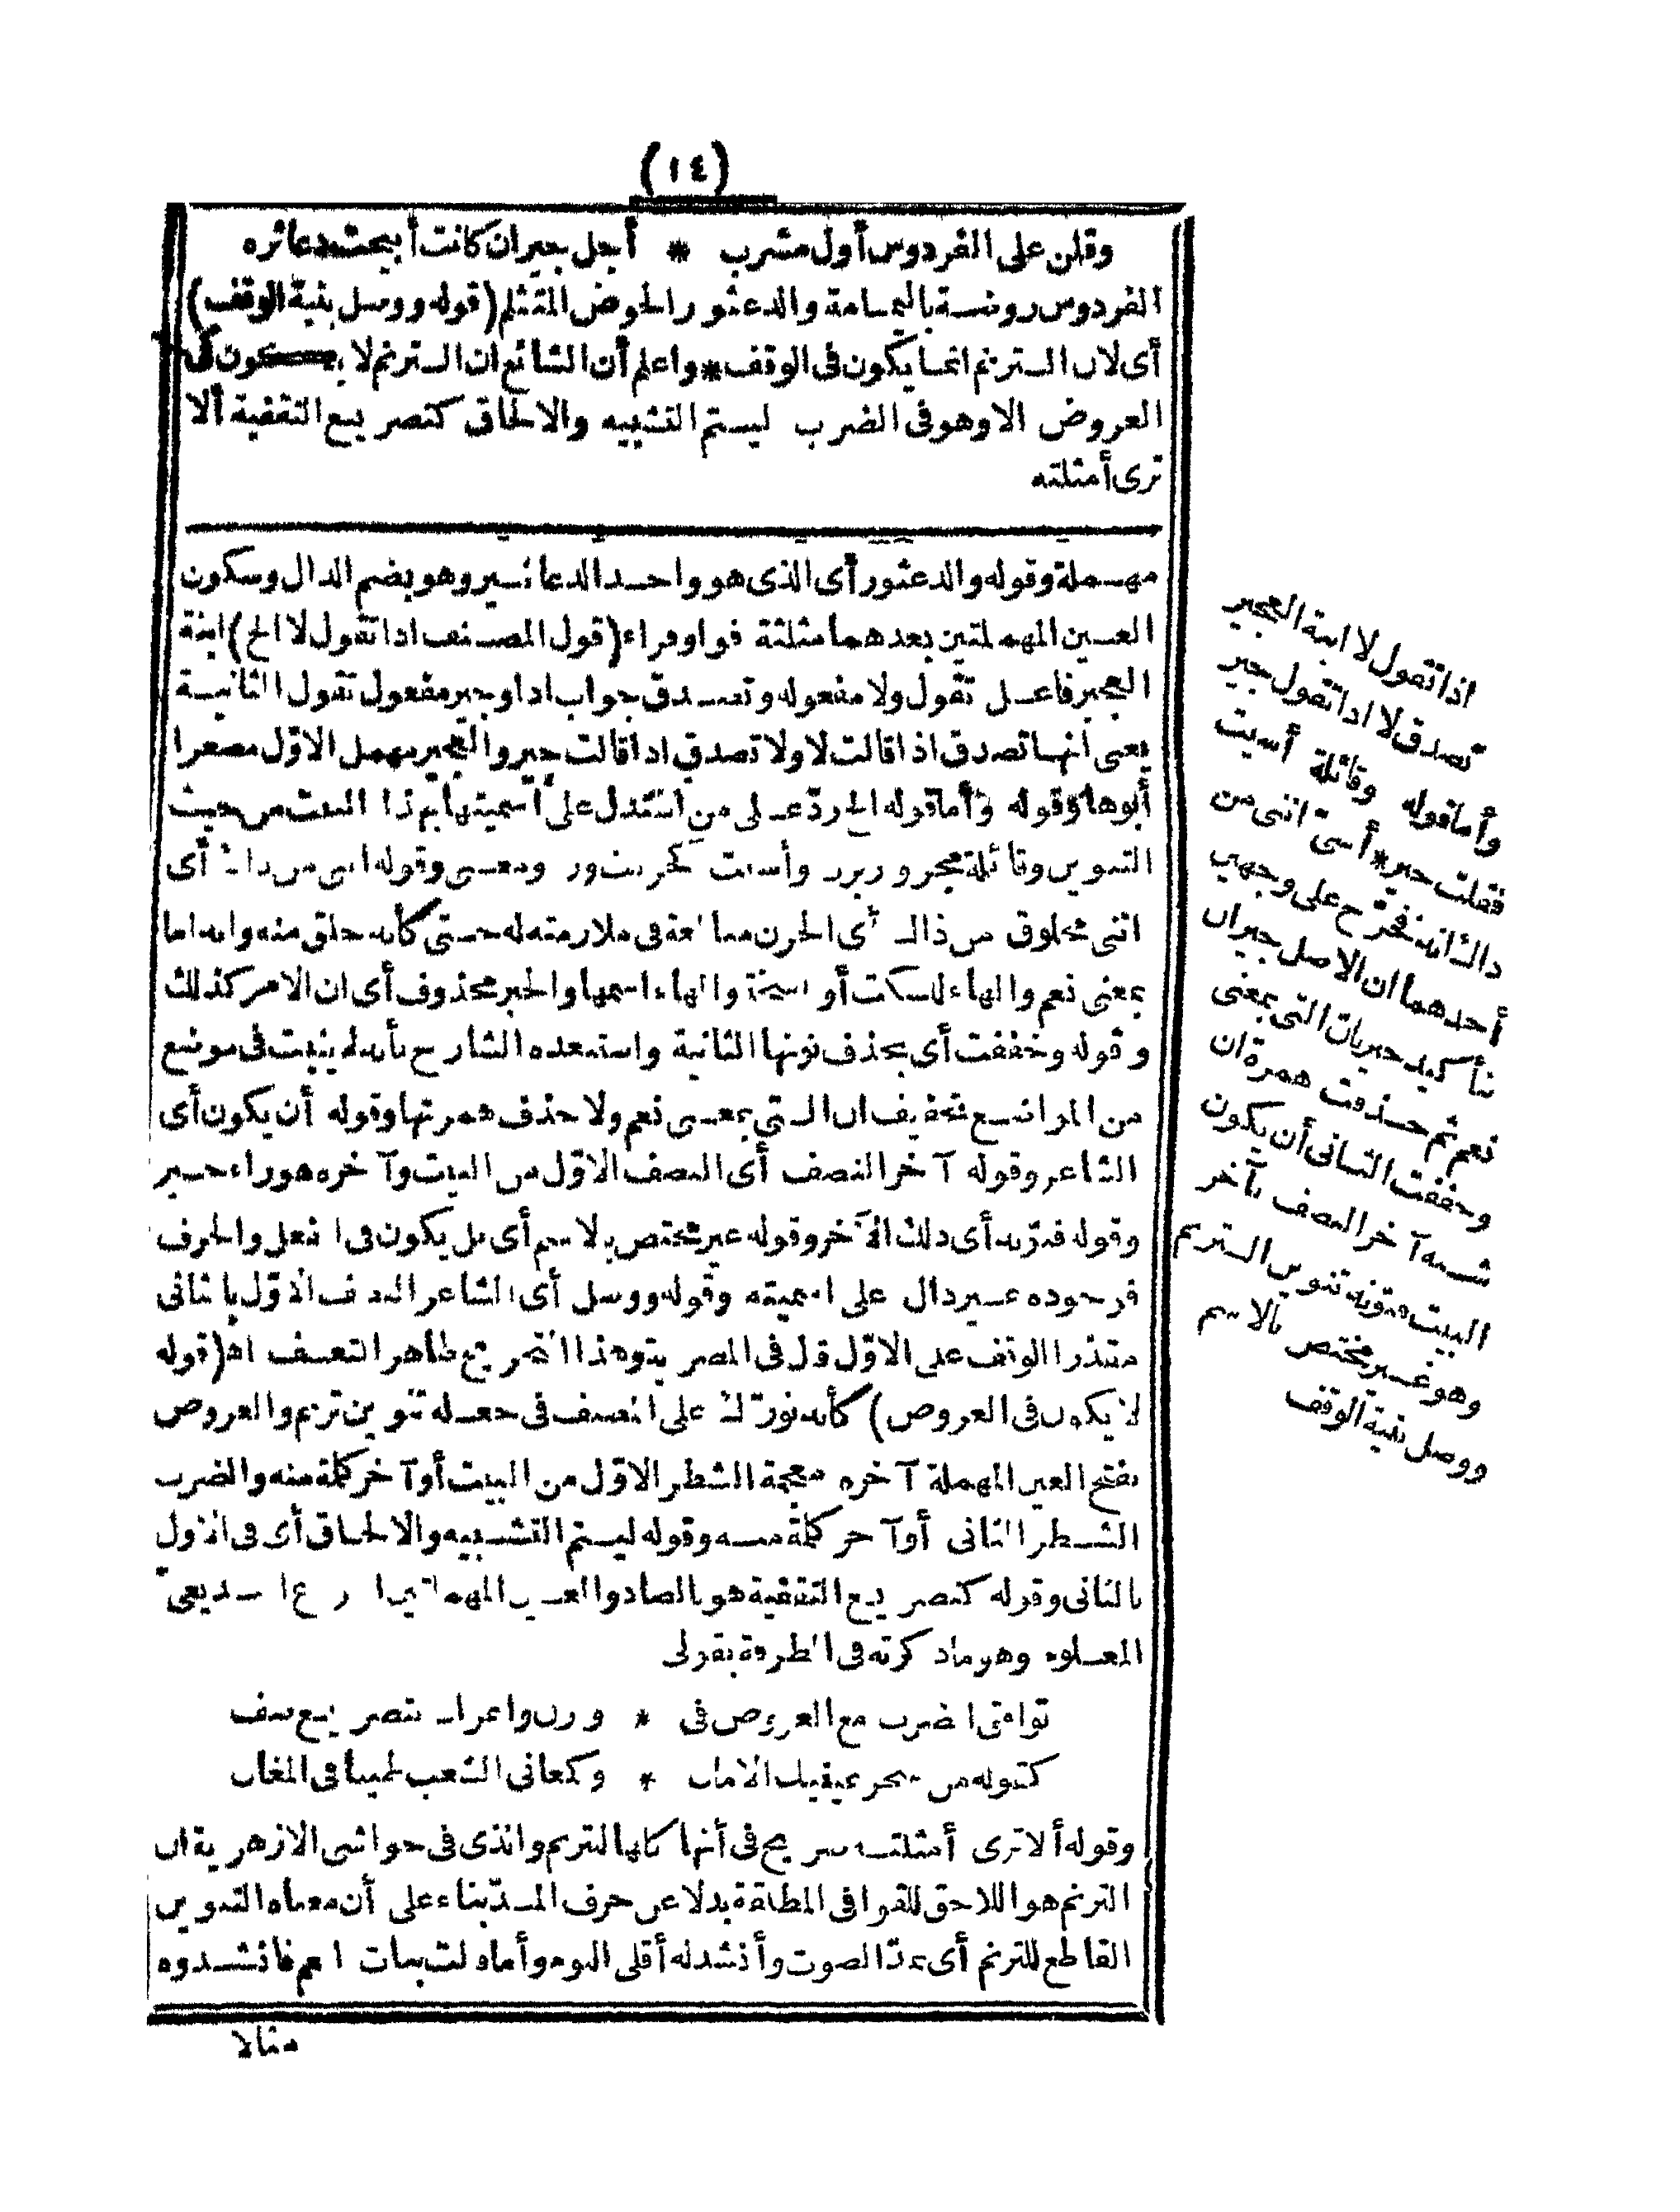 (١٤)
وقلن على الفردوس أول مشرب * أجل جير ان كانت أبيحت دعاثره
الفردوس روضة باليمامة والدعثور الحوض المتثلم (قوله ووصل بنية الوقف)
أى لان الترنم انما يكون فى الوقف * واعلم أن الشائع ان الترنم لا يكون فى
العروض الا وهو فى الضرب ليتم التشبيه والالحاق كتصريع التقفية ألا
ترى أمثلته
مهملة وقوله والدعثور أى الذى هو واحد الدعاثير وهو بضم الدال وسكون
العين المهملتين بعدهما مثلثة فواو فراء (قول المصنف اذا تقول لا الخ) ابنة
العجير فاعل تقول ولا مفعوله وتصدق جواب اذا وجير مفعول تقول الثانية
يعنى أنها تصدق اذا قالت لا ولا تصدق اذا قالت جير والعجير مهمل الاول مصغرا
أبوها وقوله وأما قوله الخ رد على من استدل على اسميتها بهذا البيت من حيث
التنوين وقائلة مجرور برب وأسيت كحزنت وزنا ومعنى وقوله اننى من ذاك أى
اننى مخلوق من ذاك أى الحزن مبالغة فى ملازمته له حتى كأنه خلق منه وانه اما
بمعنى نعم والهاء للسكت أو ناسخة والهاء اسمها والخبر محذوف أى ان الامر كذلك
وقوله وخففت أى بحذف نونها الثانية واستبعده الشارح بأنه لم يثبت فى موضع
من المواضع تخفيف ان التى بمعنى نعم ولا حذف همزتها وقوله أن يكون أى
الشاعر وقوله آخر النصف أى النصف الاول من البيت وآخره هو راء جير
وقوله فنونه أى ذلك الآخر وقوله غير مختص بالاسم أى بل يكون فى الفعل والحرف
فوجوده غير دال على اسميته وقوله ووصل أى الشاعر النصف الاول بالثانى
الوقف على الاول قال فى المصرية وهذا التخريج ظاهر التعسف اه (قوله
لا يكون فى العروض) كأنه تورك على المصنف فى جعله تنوين ترنم والعروض
بفتح العين المهملة آخره معجمة الشطر الاول من البيت أو آخر كلمة منه والضرب
الشطر الثانى أو آخر كلمة منه وقوله ليتم التشبيه والالحاق أى فى الاول
بالثانى وقوله كتصريع التقفية هو بالصاد والعين المهملتين البديعى
المعلوم وهو ما ذكرته فى الطرفة بقولى
توافق الضرب مع العروض فى * وزن واعراب بتصريع يفى
كقوله من
وقوله ألا ترى أمثلته صريح فى أنها كلها للترنم والذى فى حواشى الازهرية ان
الترنم هو اللاحق للقوافى المطلقة بدلا عن حرف المد بناء على أن معناه التنوين
القاطع للترنم أى مد الصوت وأنشد له أقلى اللوم فأنشدوه
مثالا
اذا تقول لا ابنة العجير
تصدق لا اذا تقول جير
وأما قوله وقائلة أسيت
فقلت جير * أسى اننى من
ذاك انه فخرج على وجهين
أحدهما ان الاصل جير ان
بتأكيد جير بان التى بمعنى
نعم ثم حذفت همزة ان
وخففت الثانى أن يكون
شبه آخر النصف بآخر
البيت فنونه تنوين الترنم
وهو غير مختص بالاسم
ووصل بنية الوقف